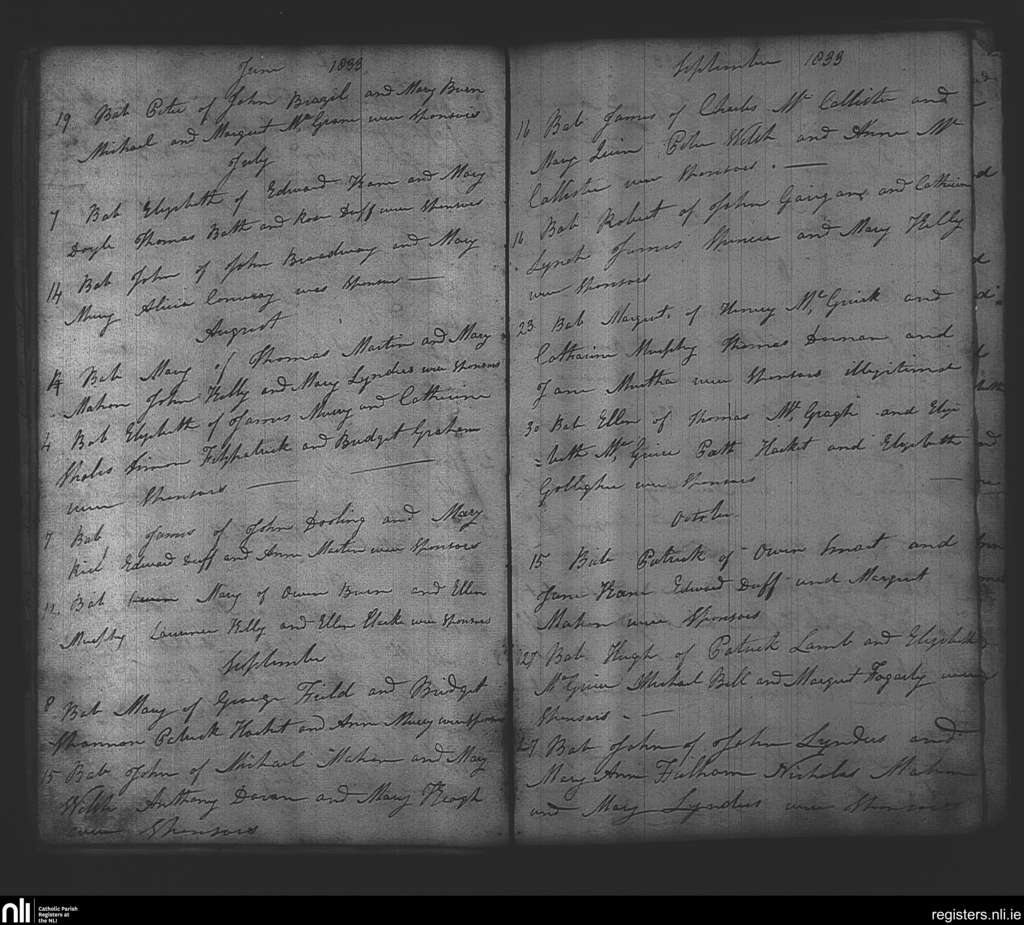 June 1833
19 Bab Peter of John Brazil and Mary Burn
Michael and Margret McGrane were Sponsors
July
7 Bab Elyzbeth of Edward Kane and Mary
Doyle Thomas Bath and Rose Duff were Sponsors
14 Bab John of John Broadway and Mary
Murry Alicia Conway was Sponsor
August
4 Bab Mary of Thomas Martin and Mary
Mahon John Kelly and Mary Lyndus were Sponsors
4 Bab Elyzbeth of James Murry and Catherine
Sholes Simon Fitzpatrick and Bridget Graham
were Sponsors
7 Bab James of John Dooling and Mary
Edward Duff and Anne Martin were Sponsors
12 Bab Mary of Owen Burn and Ellen
Murphy Laurence Kelly and Ellen Clarke were Sponsors
September
8 Bab Mary of George Field and Bridget
Shannon Patrick Hacket and Ann Murry were Sponsors
15 Bab John of Michael Mahon and Mary
Welsh Anthony Doran and Mary Keogh
were Sponsors
September 1833
16 Bab James of Charles Mc Callister and
Mary Quinn Peter Welsh and Anne Mc
Callister were Sponsors.
16 Bab Robert of John Gaigan and Catherine
Lynch James Spencer and Mary Kelly
were Sponsors
23 Bab Margret of Henry McGuirk and
Catharine Murphy Thomas and
Jane Murtha were Sponsors illegitimate
30 Bab Ellen of Thomas McGragh and Elyz
=beth McGuire Path Hacket and Elyzabeth
Gollegher were Sponsors
October
15 Bab Patrick of Owen Smart and
Jane Kane Edward Duff and Margret
Mahon were Sponsors
27 Bab Hugh of Patrick Lamb and Elyzbeth
McGuire Michael Bell and Margret Fogarty were
Sponsors
27 Bab John of John Lyndus and
Mary Ann Fulham Nicholas Mahon
and Mary Lyndus were Sponsors
nli
Catholic Parish
Registers at
the NLI
registers.nli.ie